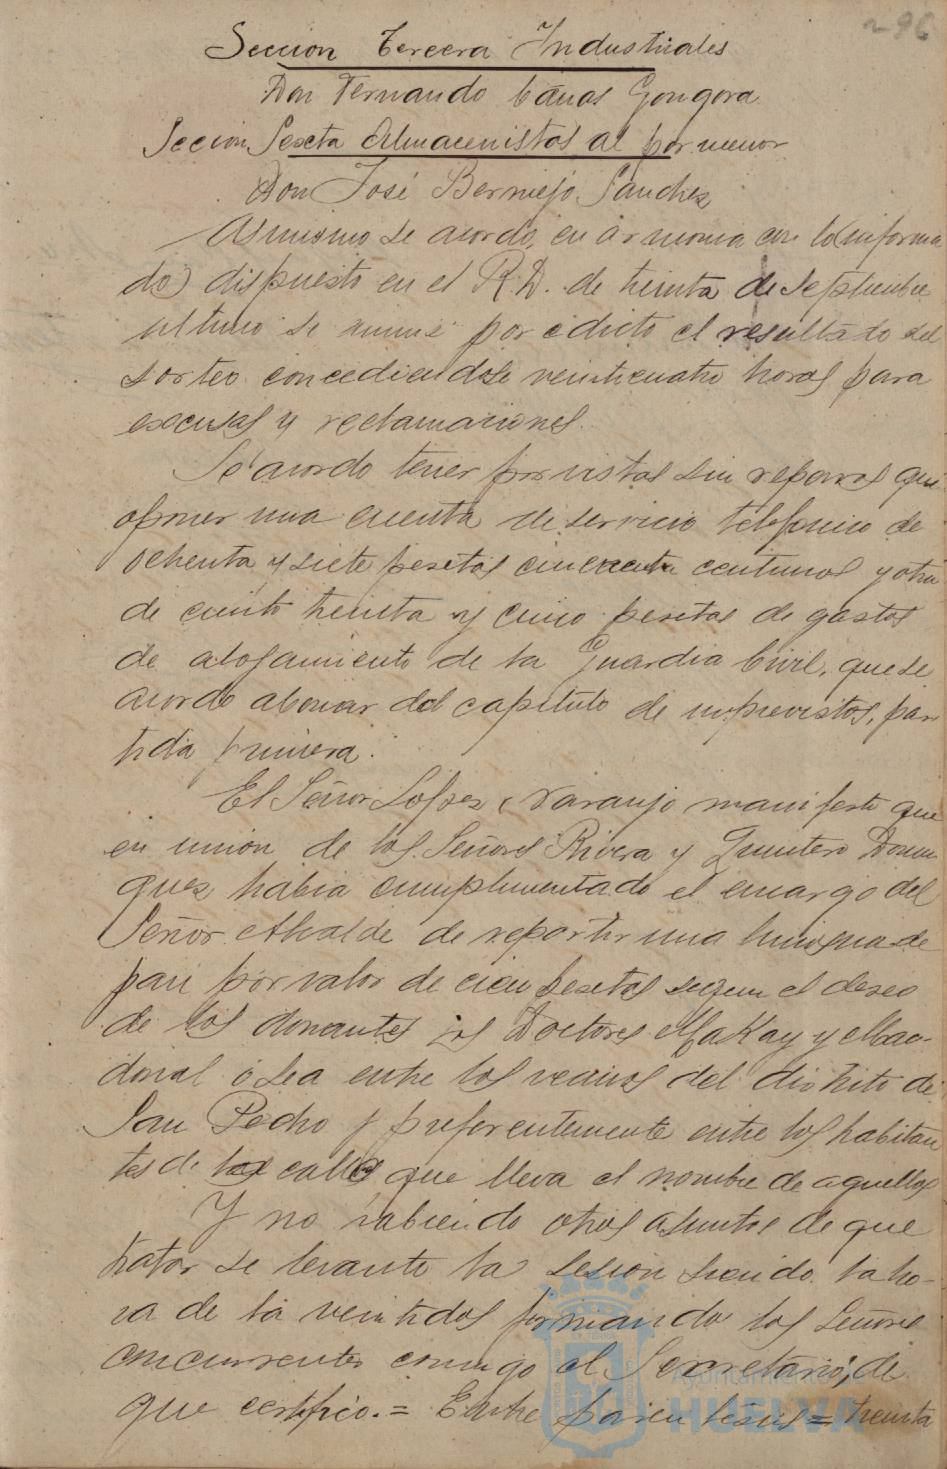 296
Seccion tercera Industriales
Don Fernando Cañas Gongora
Seccion Sexta Almacenistas al por menor
Don José Bermejo Sanchez
Asimismo se acordo, en armonia con lo (informa
do) dispuesto en el R. D. de treinta de Septiembre
ultimo se anuncie por edicto el resultado del
sorteo concediendose veinticuatro horas para
excusas y reclamaciones.
Se acordo tener por vistas sin reparos que
oponer una cuenta de servicio telefonico de
ochenta y siete pesetas cincuenta centimos y otra
de ciento treinta y cinco pesetas de gastos
de alojamiento de la Guardia Civil, que se
acordo abonar del capitulo de imprevistos, par
tida primera.
El Señor Lopez Naranjo manifesto que
en union de los Señores Rivera y Quintero Domin
guez habia cumplimentado el encargo del
Señor Alcalde de repartir una limosna de
pan por valor de cien pesetas segun el deseo
de los donantes los Doctores MaKay y Mac-
donal ó sea entre los vecinos del distrito de
San Pedro y preferentemente entre los habitan
tes de la calle que lleva el nombre de aquellos
Y no habiendo otros asuntos de que
tratar se levanto la sesion siendo la ho-
ra de la veintidos firmando los Señores
concurrentes conmigo el Secretario, de
que certifico. = Entre parentesis = treinta
Ayuntamiento
HUELVA